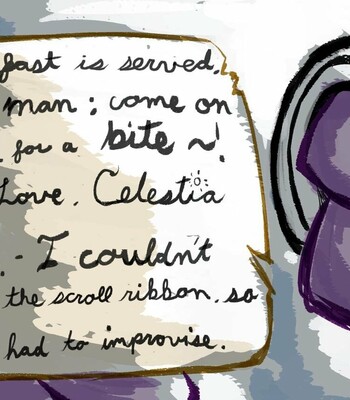 fast is served,
man; come on
for a bite ~!
Love, Celestia
I couldn't
the scroll ribbon, so
had to improvise.